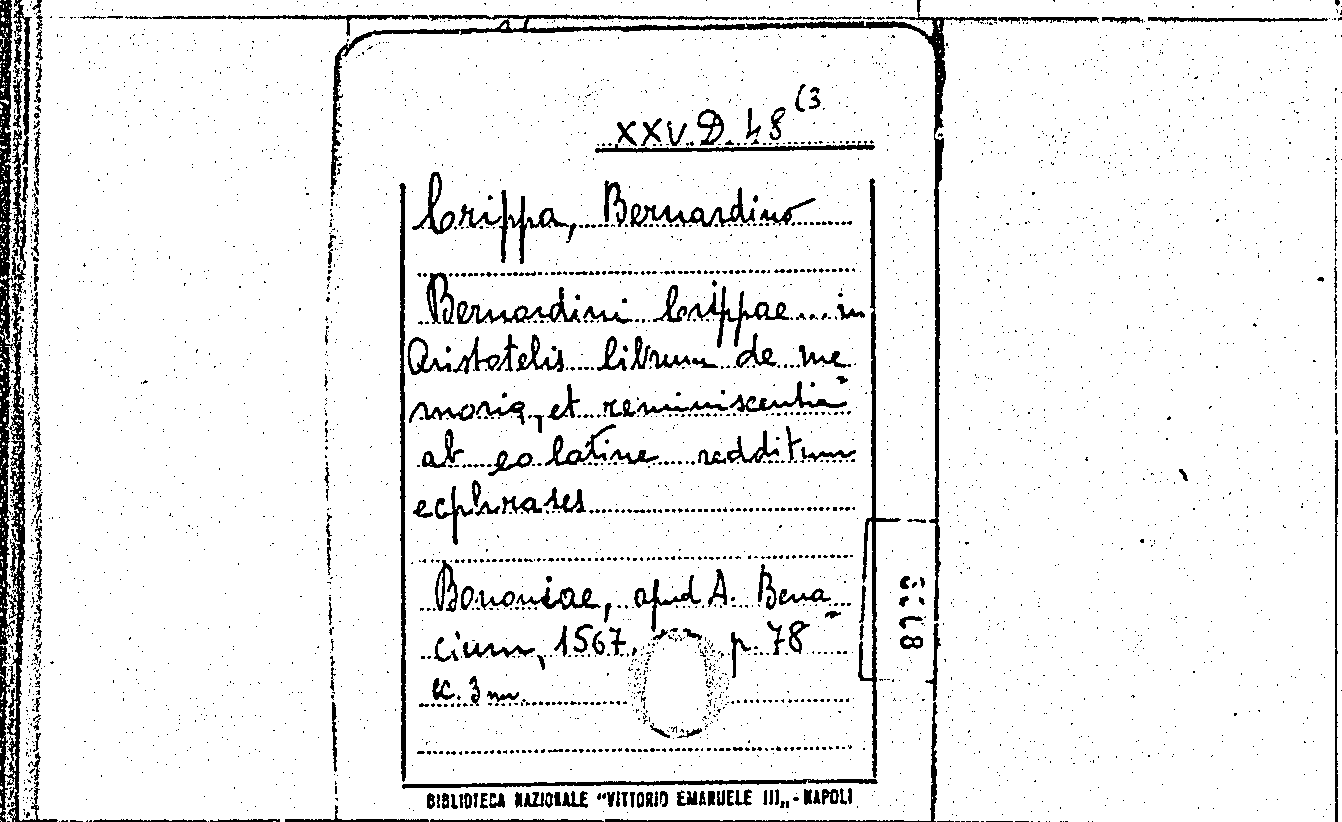 XXV.D.48(3
Crippa, Bernardino
Bernardini Crippae... in
Aristotelis librum de me
moria, et reminiscentia
ab eo latine redditum
ecphrases
Bononiae, apud A. Bena
cium, 1567. p. 78
cc. 3 nn.
BIBLIOTECA NAZIONALE "VITTORIO EMANUELE III„ - NAPOLI